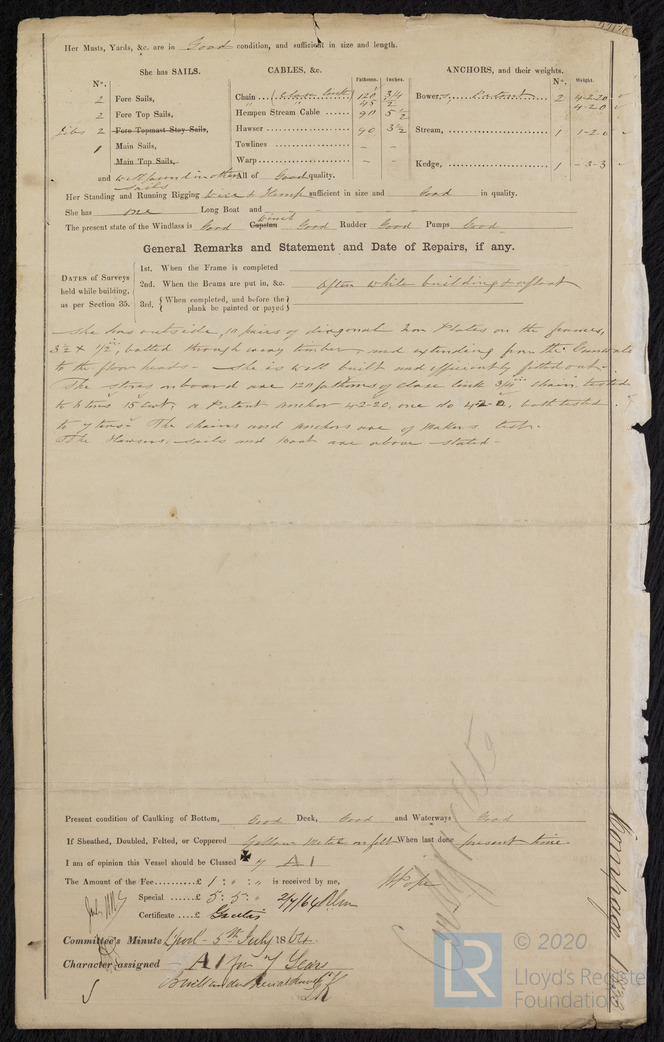 Her Masts, Yards, &c. are in Good condition, and sufficient in size and length.
She has SAILS.
CABLES, &c.
Fathoms. Inches.
ANCHORS, and their weights.
No. Weight.
No.
2 Fore Sails,
2 Fore Top Sails,
Jibs 2 Fore Topmast Stay Sails,
1 Main Sails,
Main Top Sails,
and well found in other Sails
Chain (Close link 120 3/4
" " 45 1/2
Hempen Stream Cable 90 5 1/2
Hawser 90 3 1/2
Towlines – –
Warp – –
All of Good quality.
Bowers, Patent 2 4-2-20
4-2-0
Stream, 1 1-2-0
Kedge, 1 -3-3
Her Standing and Running Rigging Wire & Hemp sufficient in size and Good in quality.
She has one Long Boat and
The present state of the Windlass is Good Capstan Winch Good Rudder Good Pumps Good
General Remarks and Statement and Date of Repairs, if any.
DATES of Surveys held while building, as per Section 35.
1st. When the Frame is completed
2nd. When the Beams are put in, &c. Often while building & afloat
3rd. {When completed, and before the plank be painted or payed}
She has outside, 10 pairs of diagonal Iron Plates on the frames,
3 1/2 x 1/2, bolted through every timber, and extending from the Gunwale
to the floor heads – She is well built and efficiently fitted out.
The stores on board are 120 fathoms of close link 3/4 chain, tested
to 15 cwt, a Patent anchor 4-2-20, one do 4-2-0, both tested
to 7 tons – The chains and anchors are of Makers test.
The Hawsers, sails and boat are above stated –
Present condition of Caulking of Bottom, Good Deck, Good and Waterways Good
If Sheathed, Doubled, Felted, or Coppered Yellow Metal on felt When last done present time
I am of opinion this Vessel should be Classed 7 A1
The Amount of the Fee £ 1 : " : " is received by me,
Special £ 5 : 5 : " 2/7/64
Certificate £ Gratis
Committee's Minute Lpool – 5th July 1864
Character assigned A1 for 7 Years
Built under Special Survey
LR
© 2020
Lloyd's Register
Foundation